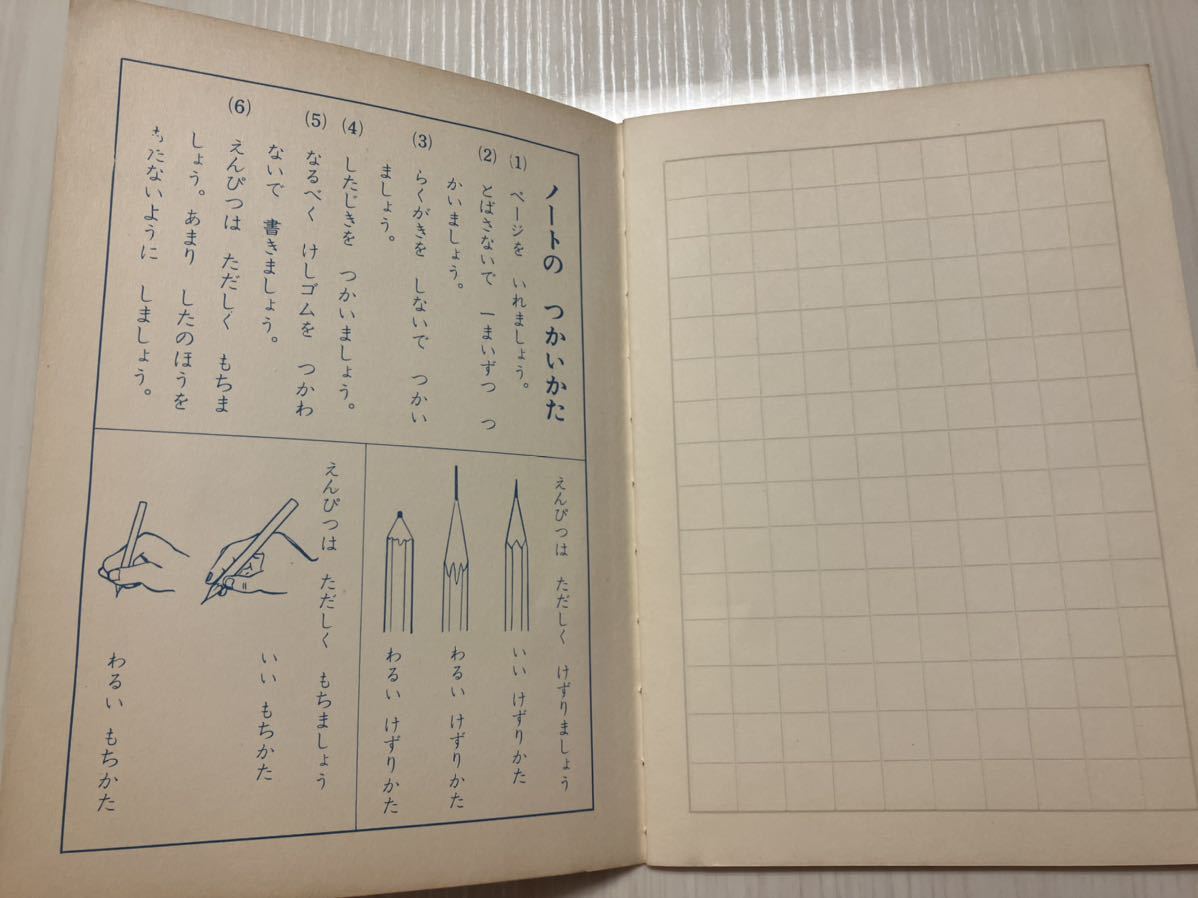 ノートの つかいかた
(1) ページを いれましょう。
(2) とばさないで 一まいずつ つ
かいましょう。
(3) らくがきを しないで つかい
ましょう。
(4) したじきを つかいましょう。
(5) なるべく けしゴムを つかわ
ないで 書きましょう。
(6) えんぴつは ただしく もちま
しょう。あまり したのほうを
もたないように しましょう。
えんぴつは ただしく けずりましょう
いい けずりかた
わるい けずりかた
わるい けずりかた
えんぴつは ただしく もちましょう
いい もちかた
わるい もちかた